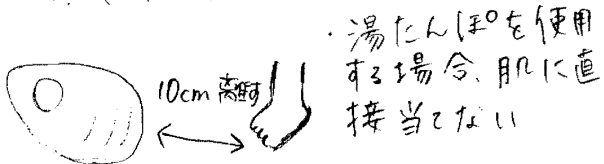 10cm 離す
・湯たんぽを使用
する場合、肌に直
接当てない